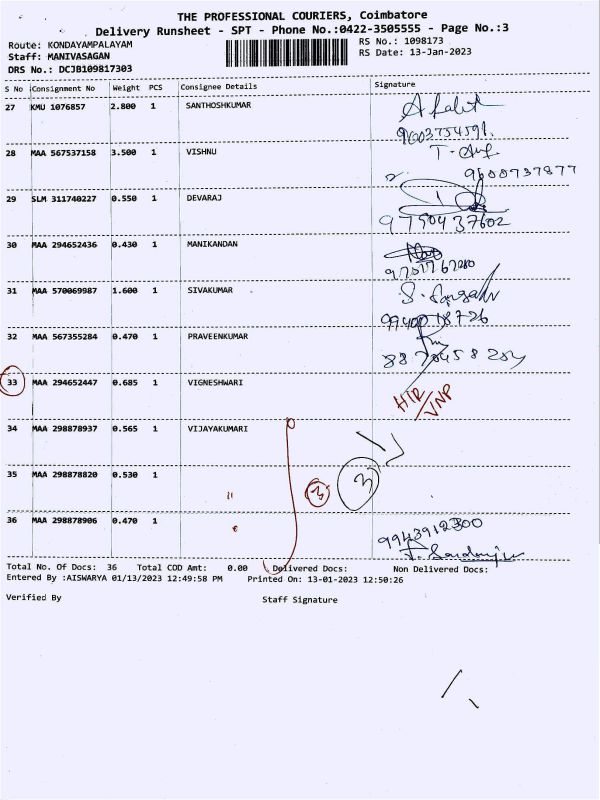 THE PROFESSIONAL COURIERS, Coimbatore
Delivery Runsheet - SPT - Phone No.:0422-3505555 - Page No.:3
Route: KONDAYAMPALAYAM
Staff: MANIVASAGAN
DRS No.: DCJB109817303
RS No.: 1098173
RS Date: 13-Jan-2023
S No Consignment No Weight PCS Consignee Details Signature
27 KMU 1076857 2.800 1 SANTHOSHKUMAR
9603754591
28 MAA 567537158 3.500 1 VISHNU
9600737877
29 SLM 311740227 0.550 1 DEVARAJ
9790437602
30 MAA 294652436 0.430 1 MANIKANDAN
31 MAA 570069987 1.600 1 SIVAKUMAR
9940018726
32 MAA 567355284 0.470 1 PRAVEENKUMAR
33 MAA 294652447 0.685 1 VIGNESHWARI
34 MAA 298878937 0.565 1 VIJAYAKUMARI
35 MAA 298878820 0.530 1
3 3
36 MAA 298878906 0.470 1
9943912300
Total No. Of Docs: 36 Total COD Amt: 0.00 Delivered Docs: Non Delivered Docs:
Entered By :AISWARYA 01/13/2023 12:49:58 PM Printed On: 13-01-2023 12:50:26
Verified By Staff Signature